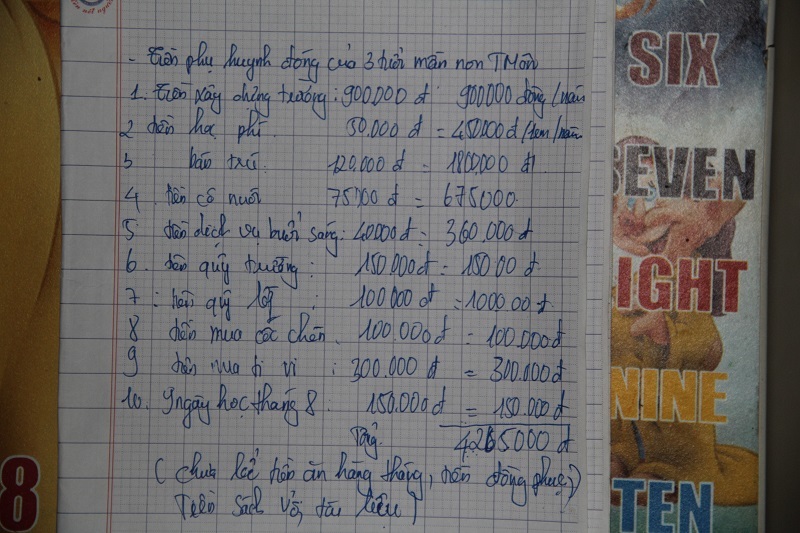 - Tiền phụ huynh đóng của 3 tuổi mần non TMôn
1. Tiền xây dựng trường: 900.000 đ: 900000 đồng/năm
2 tiền học phí. 50.000 đ = 450000 đ/1em/năm
3 bán trú 120.000 đ = 1800,000 đ
4. tiền cô nuôi 75000 đ = 675000.
5 tiền dịch vụ buổi sáng: 40.000 đ = 360.000 đ
6. tiền quỹ trường: 150.000 đ = 150.00 đ
7: tiền quỹ lớp: 100 000 đ = 1000.00 đ.
8 tiền mua cốc chén. 100.000 đ = 100.000 đ
9 tiền mua ti vi: 300.000 đ = 300.000 đ
10. 9 ngày học tháng 8: 150.000 đ = 150.000 đ
Tổng. 4265000 đ
( chưa kể tiền ăn hàng tháng, tiền đồng phục,)
Tiền sách vở, tài liệu)
8
SIX
SEVEN
IGHT
NINE
TEN